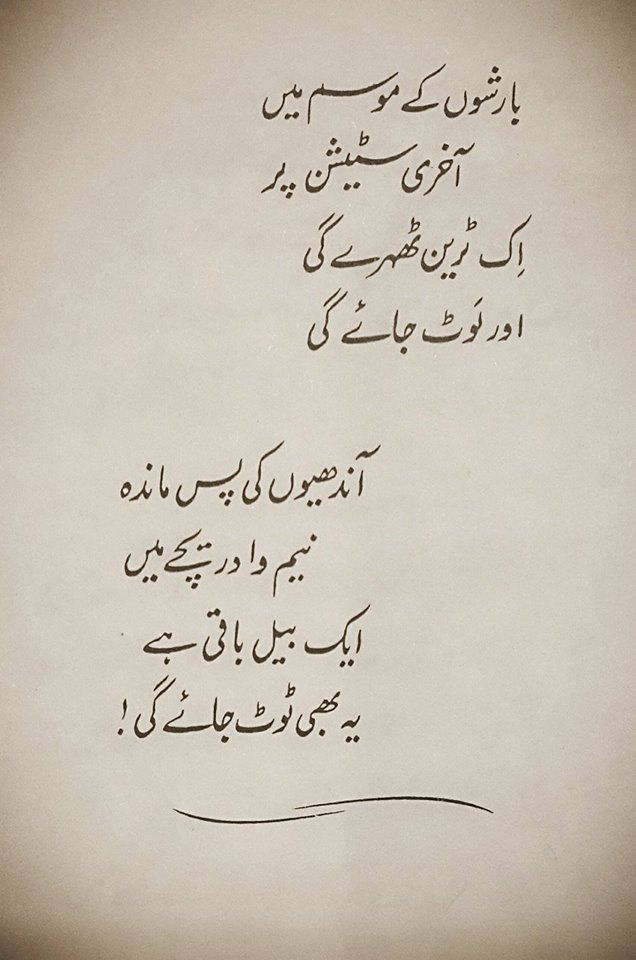 بارشوں کے موسم میں
آخری سٹیشن پر
اِک ٹرین ٹھہرے گی
اور لَوٹ جائے گی
آندھیوں کی پس ماندہ
نیم وا دریچے میں
ایک بیل باقی ہے
یہ بھی ٹوٹ جائے گی!